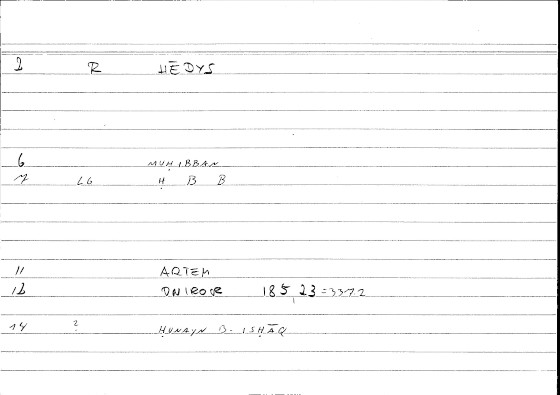 2 R HĒDYS
6 MUḤIBBAN
7 LG Ḥ B B
11 ARTEM
12 ONIROCR 185,23=3372
14 ? ḤUNAYN B. ISḤĀQ